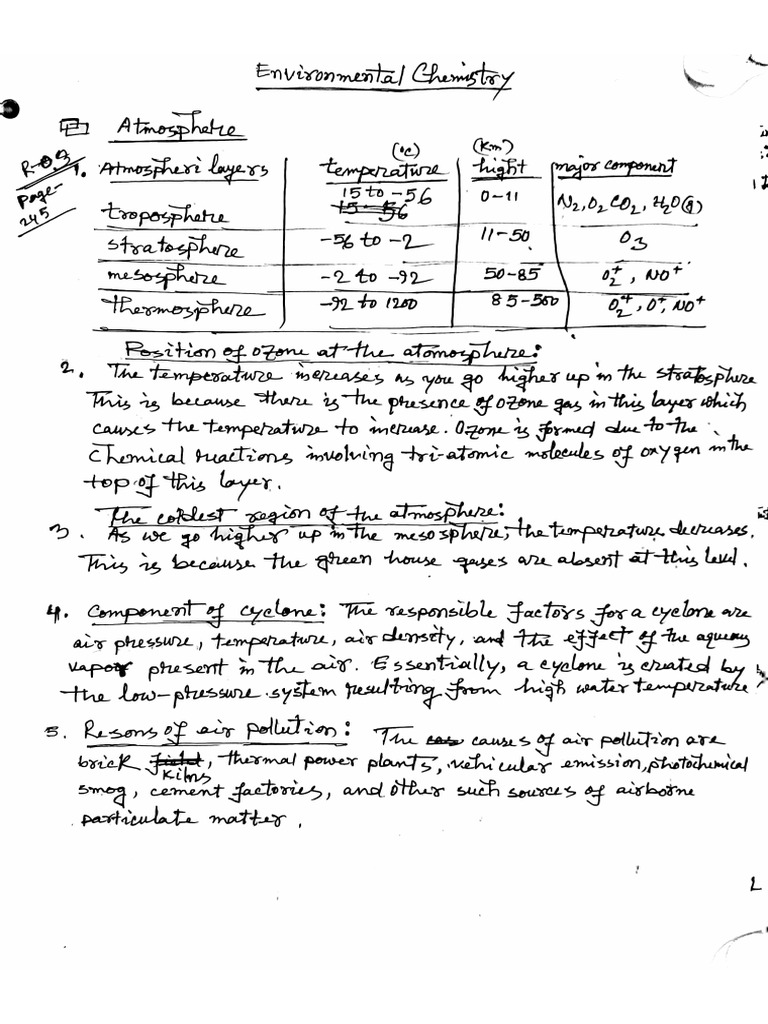 Environmental Chemistry
Atmosphere
R-0.3
Page-
245
(°C) (Km)
1. Atmospheri layers temperature hight major component
troposphere 15 to -56 0-11 N2, O2 CO2, H2O(g)
stratosphere -56 to -2 11-50 O3
mesosphere -2 to -92 50-85 O2+, NO+
thermosphere -92 to 1200 85-500 O2+, O+, NO+
Position of ozone at the atomosphere:
2. The temperature increases as you go higher up in the stratosphere
This is because there is the presence of ozone gas in this layer which
causes the temperature to increase. Ozone is formed due to the
Chemical reactions involving tri-atomic molecules of oxygen in the
top of this layer.
The coldest region of the atmosphere:
3. As we go higher up in the mesosphere, the temperature decreases.
This is because the green house gases are absent at this level.
4. Component of cyclone: The responsible factors for a cyclone are
air pressure, temperature, air density, and the effect of the aqueous
vapor present in the air. Essentially, a cyclone is created by
the low-pressure system resulting from high water temperature
5. Resons of air pollution: The causes of air pollution are
brick kilns, thermal power plants, vehicular emission, photochemical
smog, cement factories, and other such sources of airborne
particulate matter.